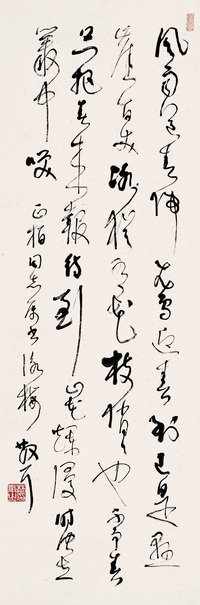 风雨送春归飞雪迎春到已是悬
崖百丈冰犹有花枝俏俏也不争春
只把春来報待到山花烂漫时她在
叢中笑 正柏同志属书咏梅 散耳